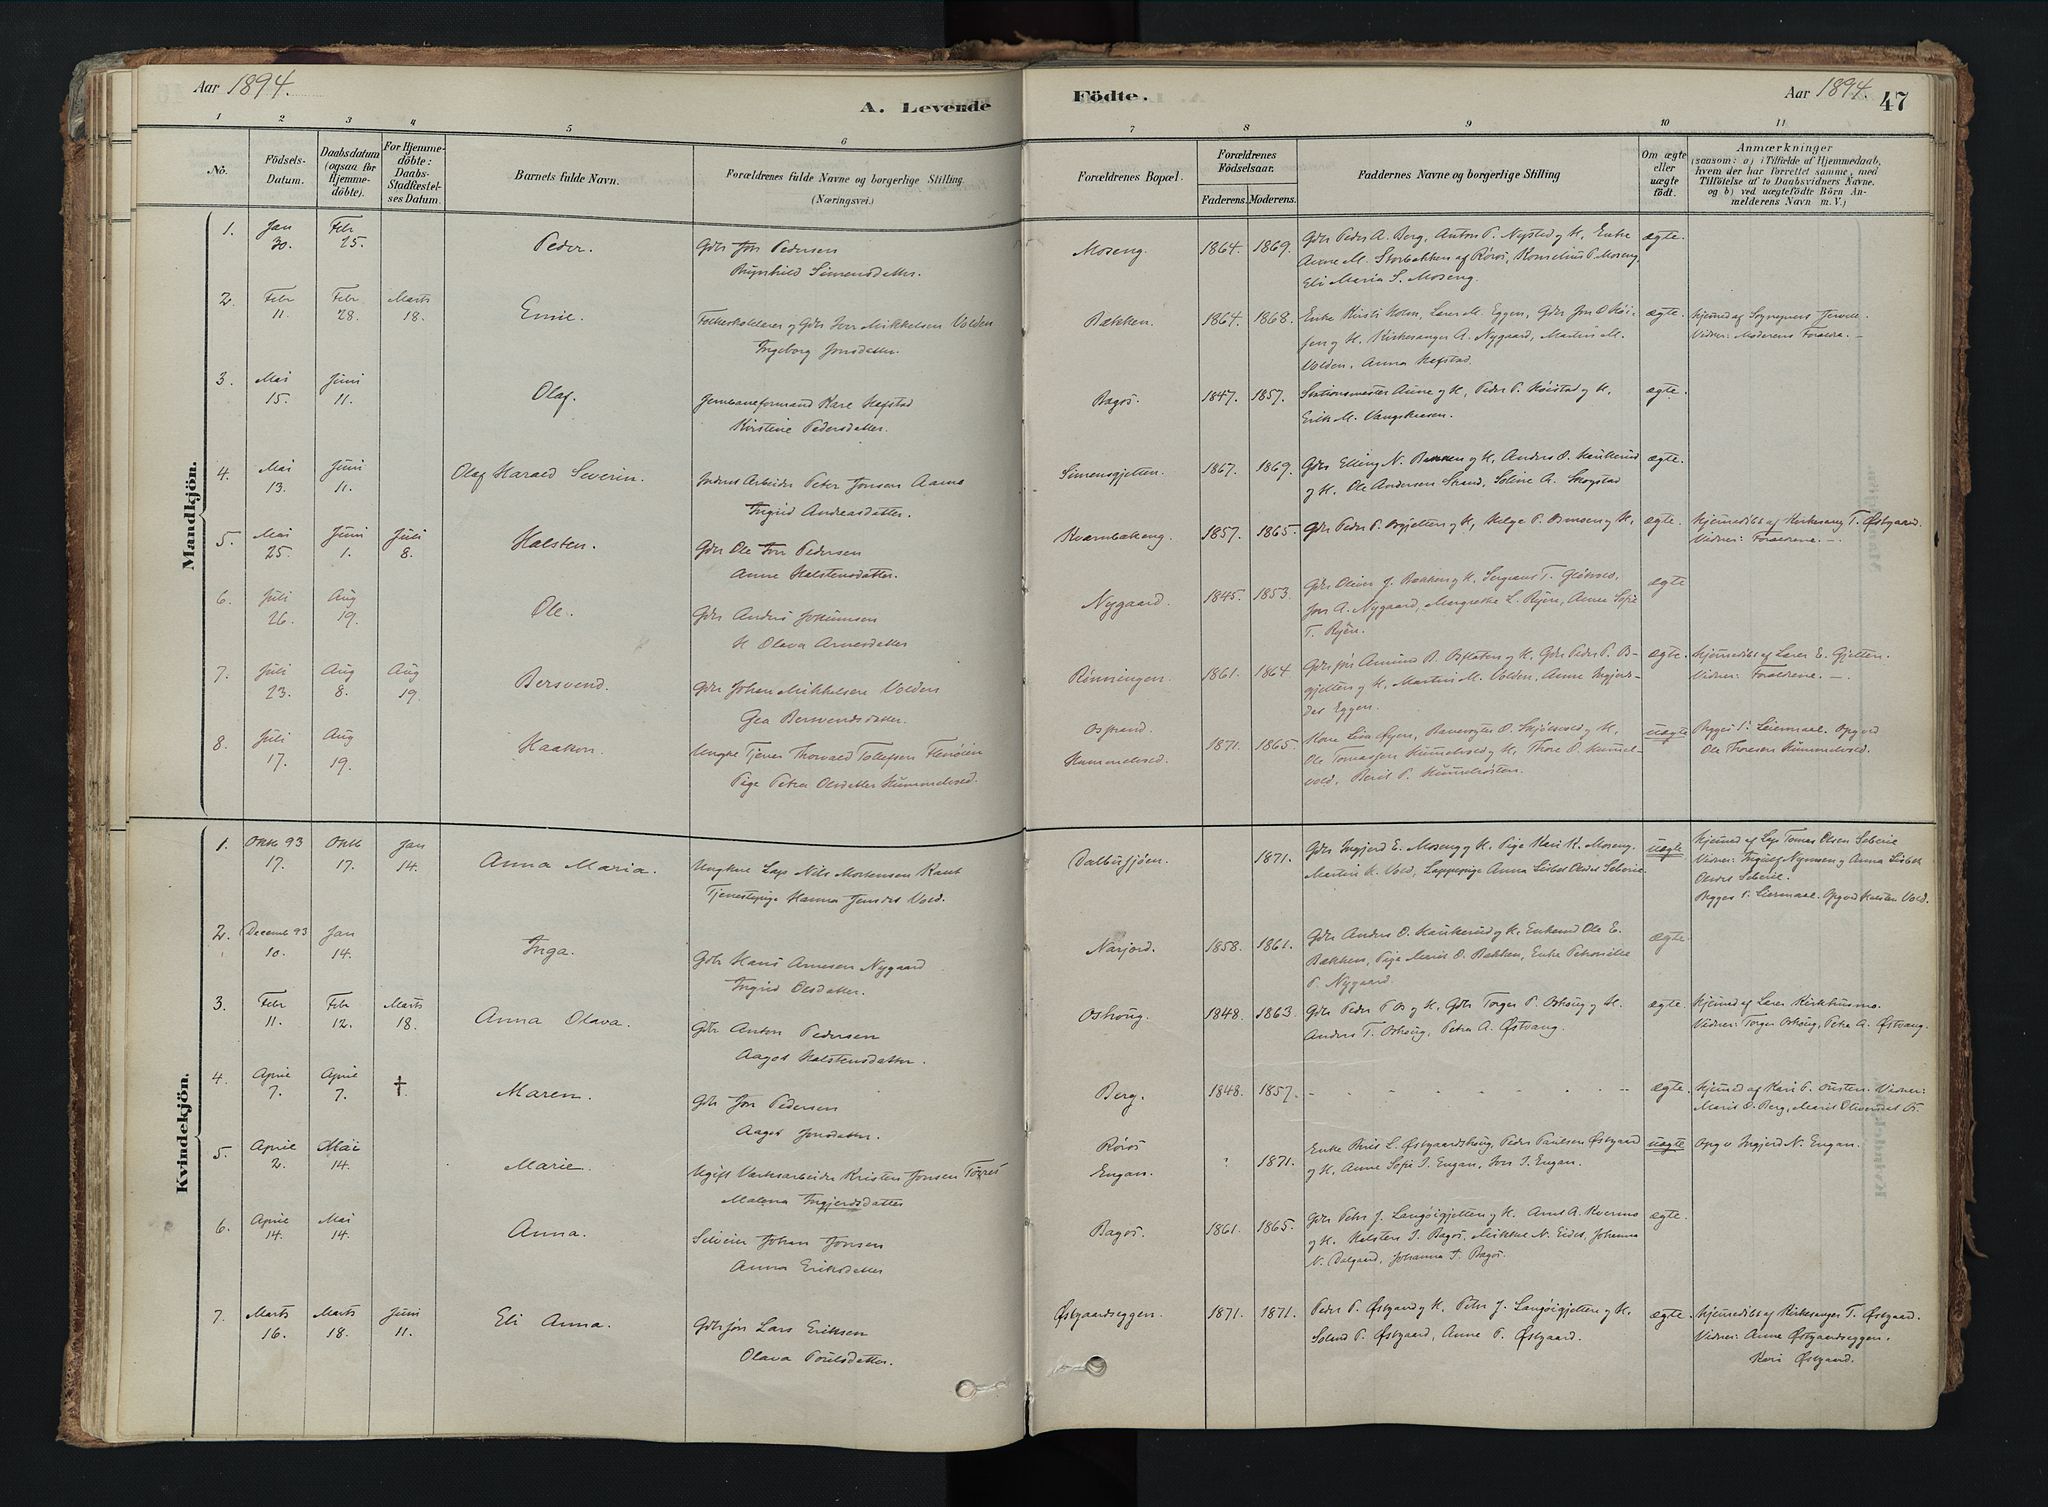 Aar 1894.
A. Levende Födte.
Aar 1894.
47
1 2 3 4 5 6 7 8 9 10 11
No.
Födsels-Datum.
Daabsdatum (ogsaa for Hjemmedöbte).
For Hjemmedöbte: Daabs-Stadfæstelses Datum.
Barnets fulde Navn.
Forældrenes fulde Navne og borgerlige Stilling (Næringsvei.)
Forældrenes Bopæl.
Forældrenes Födselsaar.
Faderens. Moderens.
Faddernes Navne og borgerlige Stilling
Om ægte eller uægte födt.
Anmærkninger
(saasom: a) i Tilfælde af Hjemmedaab, hvem der har forrettet samme, med Tilföielse af to Daabsvidners Navne, og b) ved uægtefödte Börn Anmelderens Navn m. V.)
Mandkjön.
1. Jan 30. Febr 25. Peder. Gdr Jon Pedersen
Brynhild Simensdatter.
Moseng. 1864. 1869. Gdr Peder A. Berg, Anton P. Nysted og H, Enke
Anne M. Storbækken af Röros, Kornelius P. Moseng
Eli Maria S. Moseng.
ægte.
2. Febr 11. Febr 28. Marts 18. Emil. Mikkelsen Volden
Ingeborg Jonsdatter.
Bækken. 1864. 1868. Enke Kirsti Holm, Lærer M. Eggen, Gdr Jon O
og H. Kirkesanger A. Nygaard, Martin M.
Volden, Anna Hafstad.
ægte. Vidner: Moderens Forældre. —
3. Mai 15. Juni 11. Olaf. Jernbaneformand Kare Hafstad
Kirstine Pedersdatter.
Bagös. 1847. 1857. Stationsmester Aune og H, Peder P. Höistad og H,
Erik M. Vangskaasen.
ægte.
4. Mai 13. Juni 11. Olaf Harald Severin. Arbeider Peter Jonsen Aamo
Ingrid Andreasdatter.
Simensgjetten. 1867. 1869. Gdr Elling N. og H, Anders O. Haukerud
og H. Ole Andersen Strand, Soline A. Skogstad
ægte.
5. Mai 25. Juni 1. Juli 8. Halsten. Gdr Ole Jon Pedersen
Anne Halstensdatter.
Kværnbækeng. 1857. 1865. Gdr Peder P. og H, Helge P. og H.
ægte. Hjemmedöbt af Kirkesang T. Østgaard.
Vidner: Forældrene. —
6. Juli 26. Aug 19. Ole. Gdr Anders Johnnsen
H Olava Arnesdatter
Nygaard. 1845. 1853. Gdr Oliver J. Bækken og H, Sergeant T. Gjösvold,
Jon A. Nygaard, Margrethe L. Ryen, Anne Sofie
T. Ryen.
ægte
7. Juli 23. Aug 8. Aug 19. Bersvend. Gdr Johan Mikkelsen Volden
Gea Bersvendsdatter.
Rönningen. 1861. 1864. Gdr Amund B. og H, Gdr Peder P.
gjetten og H, Martin M. Volden, Anne Ingjers-
dtr Eggen.
ægte. Hjemmedöbt af Lærer E. Gjetten.
Vidner: Forældrene. —
8. Juli 17. Aug 19. Haakon. Ungke Tjener Thorvald Tollefsen Flenöien
Pige Petra Olsdatter Hummelvold.
Osstrand.
Hummelvold. 1871. 1865. Kone Lisa Öyen, Banevogter O. Skjölsvold og H.
Ole Tomassen Hummelvold og H, Thore O. Hummel-
vold, Berit P.
uægte Begges 1. Leiermaal. Opgivet
Ole Thoresen Hummelvold.
Kvindekjön.
1. Oktb 93 17. Oktb 17. Jan 14. Anna Maria. Ungkar Lap Nils Mortensen Kant
Tjenestepige Hanna Jensdtr Vold.
Dalbusjöen. 1871. Gdr Ingjerd E. Moseng og H. Pige Kari K. Moseng.
Martin H. Vold, Lappepige Anna Lisbet Olsdtr
uægte Hjemmed af Lap Tomas Olsen
Vidner: Ingulf Nymoen og Anna Lisbet
Olsdtr
Begges 1. Leiermaal. Opgivet Halsten Vold.
2. Decemb 93 10. Jan 14. Inga. Gdr Hans Arnesen Nygaard
Ingrid Olsdatter.
Narjord. 1858. 1861. Gdr Anders O. Haukerud og H. Enkemd Ole E.
Bækken, Pige Marit O. Bækken, Enke Petronille
P. Nygaard.
ægte
3. Febr 11. Febr 12. Marts 18. Anna Olava. Gdr Anton Pedersen
Aagot Halstensdatter.
Oshoug. 1848. 1863. Gdr Peder P Os og H, Gdr Torger P. Oshoug og H.
Anders T. Oshoug, Petra A. Östvang.
ægte. Hjemmed af Lærer Kirkhusmo.
Vidner: Torger Oshoug, Petra A. Östvang.
4. April 7. April 7. † Maren. Gdr Jon Pedersen
Aagot Jonsdatter.
Berg. 1848. 1857. - - - - - -
ægte. Hjemmed af Kari P. Vidner:
Marit O. Berg, Marit Oliversdtr
5. April 2. Mai 14. Marie. Ugift Værksarbeider Kristen Jonsen
Malena Ingjerdsdatter
Röros
Engan. ? 1871. Enke Berit L. Østgaardshoug, Peder Paulsen Østgaard
og H, Anne Sofie I. Engan, Jon I. Engan.
uægte Opg v Ingjerd N. Engan.
6. April 14. Mai 14. Anna. Selveier Johan Jonsen
Anna Eriksdatter
Bagös. 1861. 1865. Gdr Peter J. Langöigjetten og H. Arnt A. Kværnes
og H. Halsten J. Bagös, Mikkel N. Eidet, Johanna
N. Dalgaard, Johanna J. Bagös.
ægte.
7. Marts 16. Marts 18. Juni 11. Eli Anna. Gdr Lars Eriksen
Olava Poulsdatter.
Østgaardseggen. 1871. 1871. Peder P. Østgaard og H. Peter J. Langöigjetten og H.
P. Østgaard, Anne P. Østgaard.
ægte Hjemmedöbt af Kirkesanger T. Østgaard.
Vidner: Anne Østgaardseggen,
Kari Østgaard.